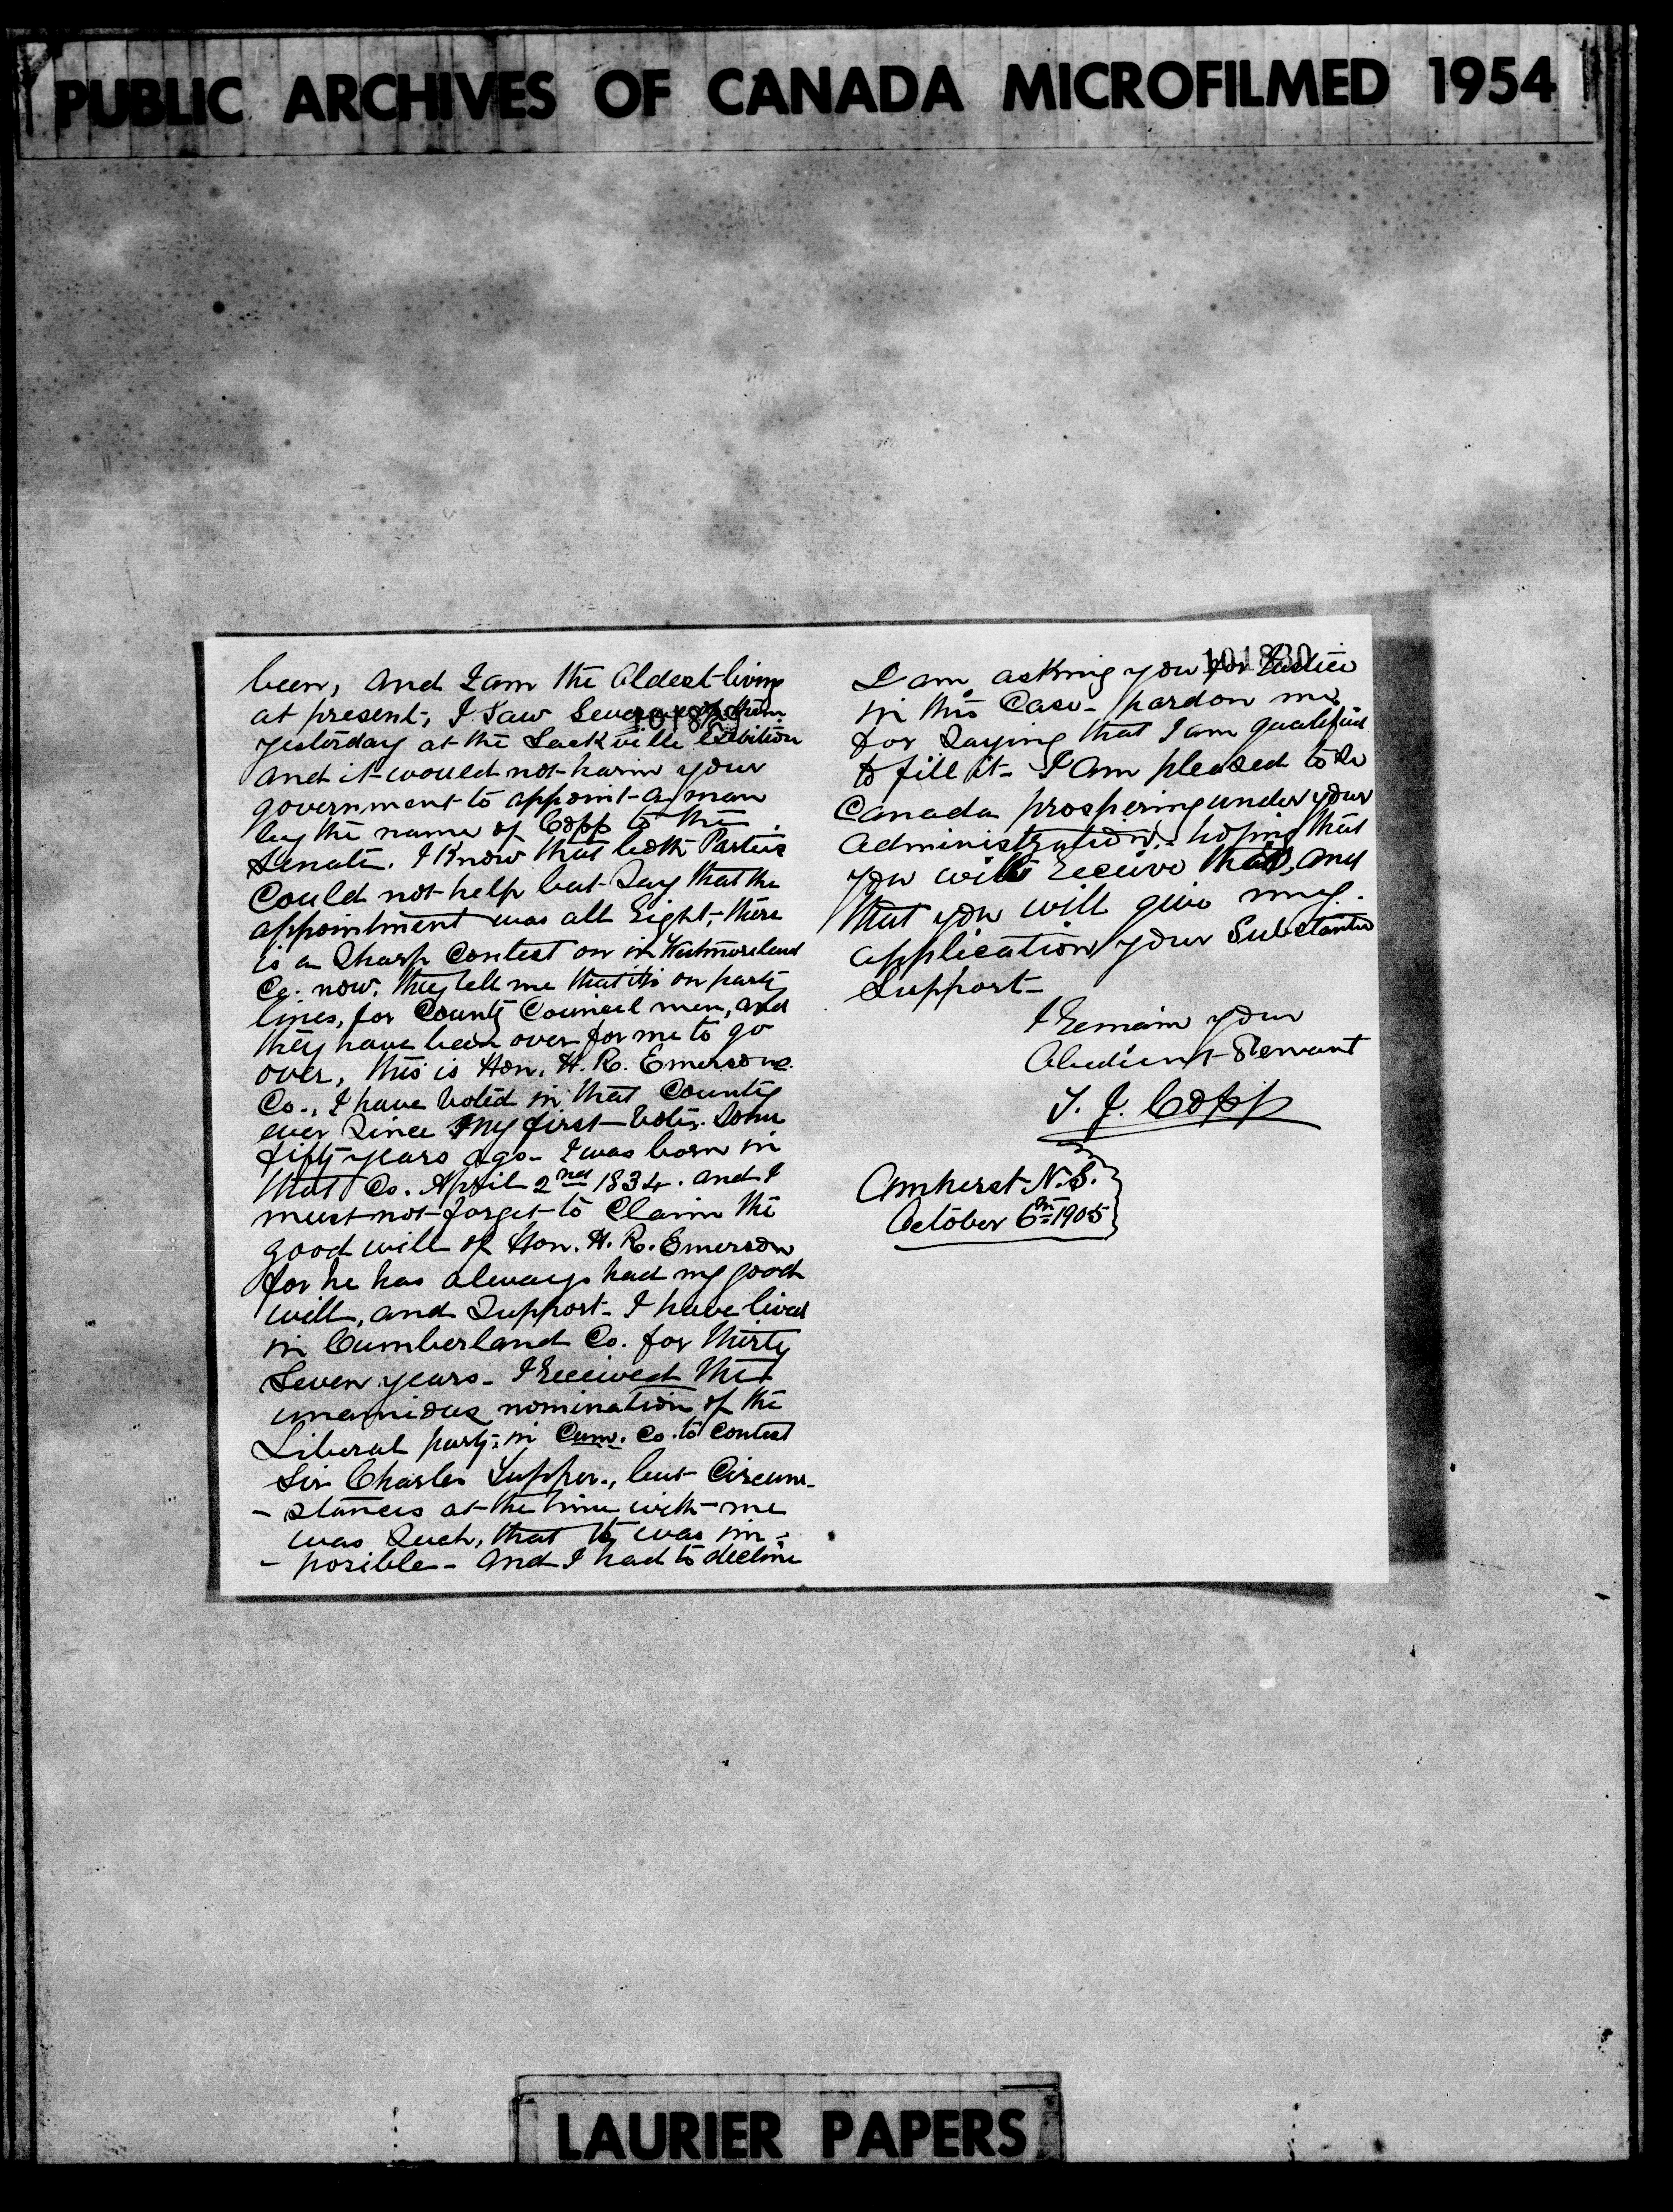 PUBLIC ARCHIVES OF CANADA MICROFILMED 1954
been, and I am the Oldest living
at present, I Saw Several of them
yesterday at the Sackville Exibition
and it would not harm your
government to appoint a man
by the name of Copp to the
Senate. I Know that both Parties
Could not help but Say that the
appointment was all right, there
is a Sharp Contest on in Westmoreland
Co. now. they tell me that it is on party
lines, for County Council men, and
they have been over for me to go
over, this is Hon. H. R. Emersons
Co., I have voted in that County
ever Since My first vote. Some
fifty years ago - I was born in
that Co. April 2nd 1834. and I
must not forget to Claim the
good will of Hon. H. R. Emerson
for he has always had my good
will, and Support - I have lived
in Cumberland Co. for thirty
Seven years - I received the
unanidus nomination of the
Liberal party, in Cum. Co. to Contest
Sir Charles Tupper., but Circum-
- stances at the time with me
was Such, that it was im-
- posible - and I had to decline
101829
101830
I am asking you for Justice
in this Case - pardon me
for Saying that I am qualified
to fill it - I am pleased to see
Canada prospering under your
administration. hoping that
you will receive this, and
that you will give my
application your Substantial
Support -
I remain your
Obedient Servant
T. J. Copp
Amherst N.S.
October 6th 1905
LAURIER PAPERS